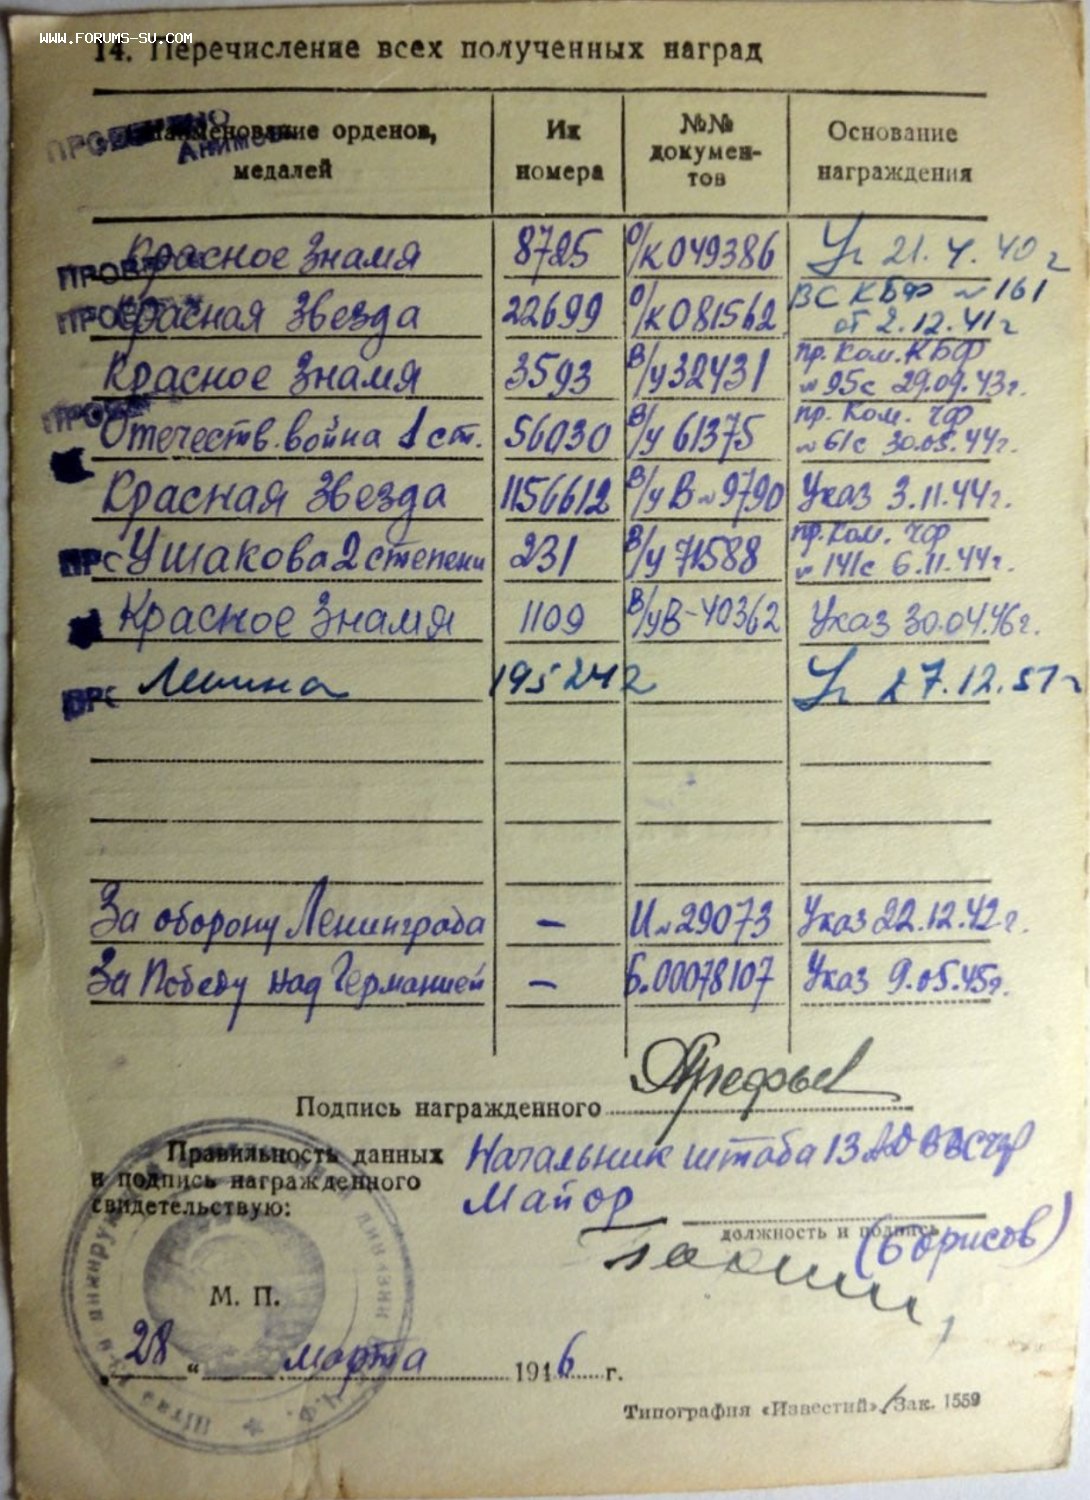 WWW.FORUMS-SU.COM
14. Перечисление всех полученных наград
Наименование орденов, медалей
Их номера
№№ докумен-тов
Основание награждения
Красное Знамя 8725 О/К 049386 Ук 21.4.40 г
Красная Звезда 22699 О/К 081562 ВС КБФ № 161 от 2.12.41 г
Красное Знамя 3593 В/У 32431 пр. Ком. КБФ № 95с 29.09.43 г.
Отечеств. война 1 ст. 56030 В/У 61375 пр. Ком. ЧФ № 61с 30.05.44 г.
Красная Звезда 1156612 В/У В № 9790 Указ 3.11.44 г.
Ушакова 2 степени 231 В/У 71588 пр. Ком. ЧФ № 141с 6.11.44 г.
Красное Знамя 1109 В/У В-40362 Указ 30.04.46 г.
Ленина 195242 Ук 27.12.51 г
За оборону Ленинграда — И № 29073 Указ 22.12.42 г.
За Победу над Германией — Б.00078107 Указ 9.05.45 г.
Подпись награжденного
Правильность данных
и подпись награжденного
свидетельствую:
Начальник штаба 13 АД ВВС ЧФ
Майор
должность и подпись
(Борисов)
М. П.
28 " марта 1946 г.
Типография «Известий». Зак. 1559